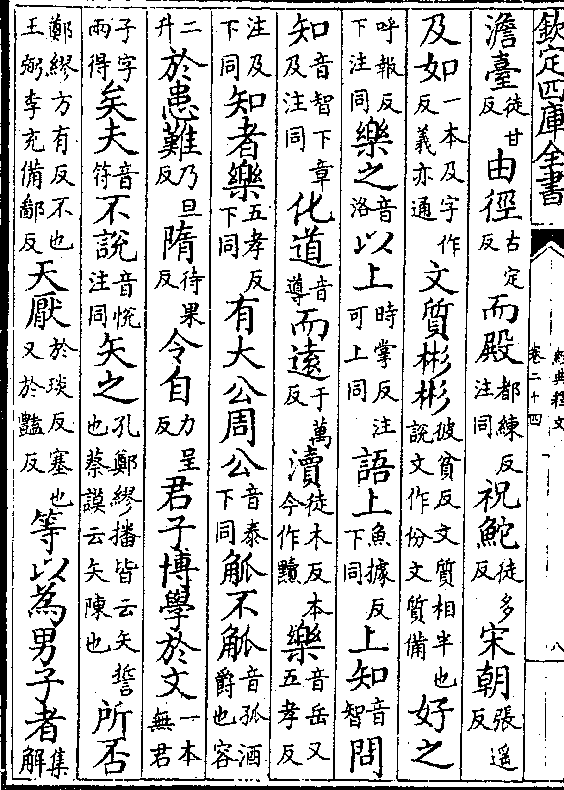 欽定四庫全書
經典釋文
卷二十四
八
澹臺徒甘反由徑古定反而殿都練反注同祝鮀徒多反宋朝張遥反
及如一本及字作反義亦通文質彬彬彼貧反文質相半也說文作份文質備好之
呼報反下注同樂之音洛以上時掌反注可上同語上魚據反下同上知音智問
知音智下章及注同化道音導而遠于萬反瀆徒木反本今作黷樂音岳又五孝反
注及下同知者樂五孝反下同有大公周公音泰下同觚不觚音孤酒爵也容
二升於患難乃旦反隋待果反令自力呈反君子博學於文一本無君
子字兩得矣夫音符不說音悅注同矢之孔鄭繆播皆云矢誓也蔡謨云矢陳也所否
鄭繆方有反不也王弼李充備鄙反天厭於琰反塞也又於豔反等以為男子者集解